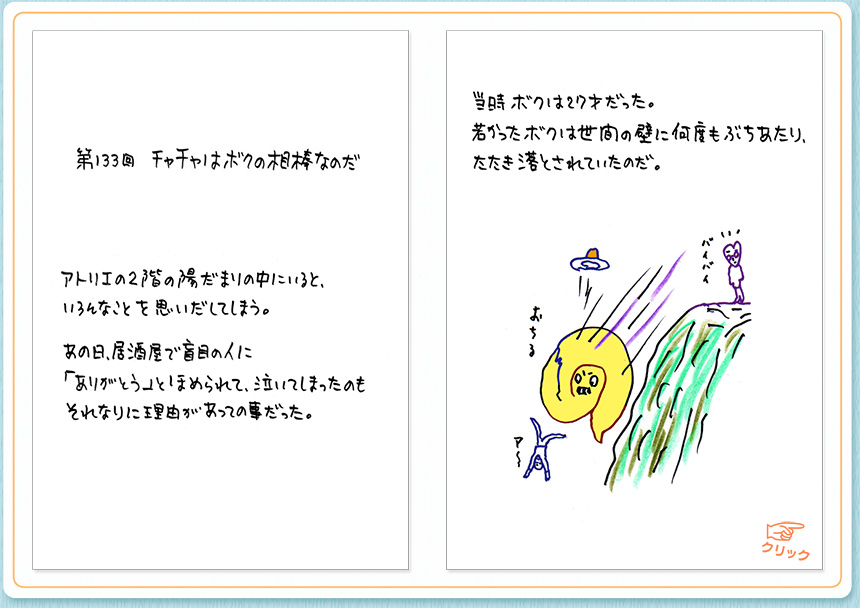 第133回 チャチャはボクの相棒なのだ
アトリエの2階の陽だまりの中にいると、
いろんなことを思いだしてしまう。
あの日、居酒屋で盲目の人に
「ありがとう」とほめられて、泣いてしまったのも
それなりに理由があっての事だった。
当時ボクは27才だった。
若かったボクは世間の壁に何度もぶちあたり、
たたき落とされていたのだ。
バイバイ
おちる
ア〜
クリック